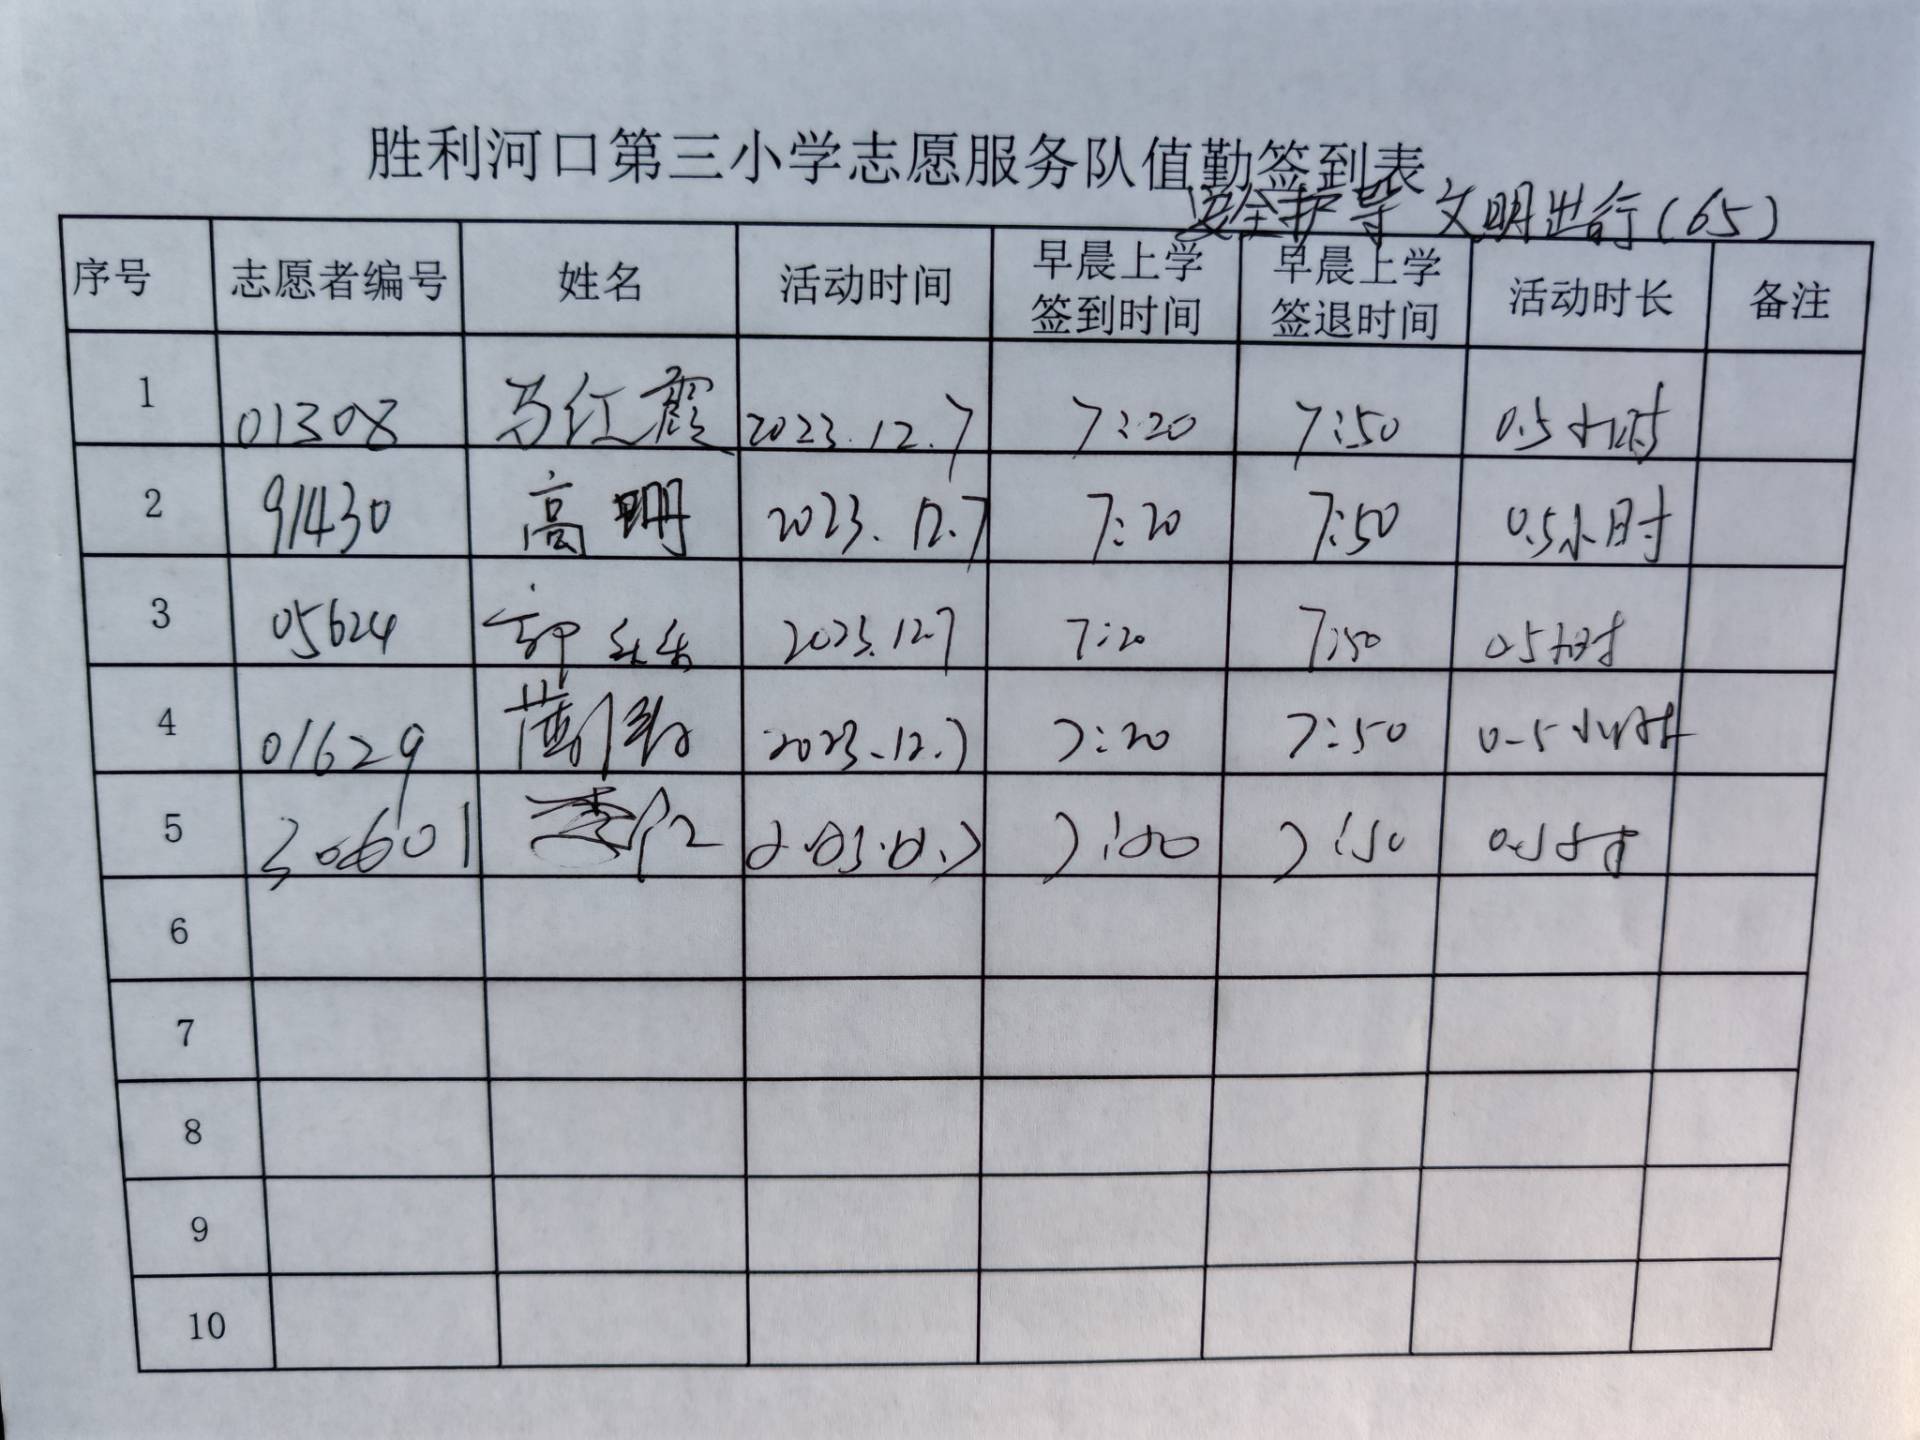 胜利河口第三小学志愿服务队值勤签到表
安全护导 文明出行(65)
序号 志愿者编号 姓名 活动时间 早晨上学签到时间 早晨上学签退时间 活动时长 备注
1 01308 马红霞 2023.12.7 7:20 7:50 0.5小时
2 91430 高珊 2023.12.7 7:20 7:50 0.5小时
3 05624 郭 2023.12.7 7:20 7:50 0.5小时
4 01629 2023.12.7 7:20 7:50 0.5小时
5 30601 李 7:50
6
7
8
9
10